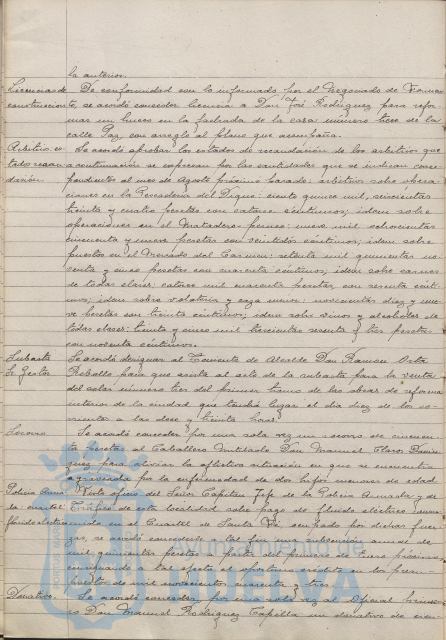 la anterior.
Licencias de De conformidad con lo informado por el Negociado de Fomen-
construccion to, se acordó conceder licencia a Don José Rodríguez para refor-
mar un hueco en la fachada de la casa número trece de la
calle Paz, con arreglo al plano que acompaña.
Arbitrios es- Se acordó aprobar los estados de recaudación de los arbitrios que
tado recau- a continuación se expresan por las cantidades que se indican corres-
dación. pondientes al mes de Agosto próximo pasado: arbitrios sobre opera-
ciones en la Pescadería del Dique: ciento quince mil, seiscientas
treinta y cuatro pesetas con catorce céntimos; idem sobre
operaciones en el Matadero: nueve mil ochocientas
cincuenta y nueve pesetas con veintidos céntimos; idem sobre
puestos en el Mercado del Carmen: setenta mil quinientas no-
venta y cinco pesetas con cuarenta céntimos; idem sobre carnes
de todas clases: catorce mil cuarenta pesetas con sesenta cénti-
mos; idem sobre volatería y caza menor: novecientas diez y nue-
ve pesetas con treinta céntimos; idem sobre vinos y alcoholes de
todas clases: treinta y cinco mil trescientas sesenta y tres pesetas
con noventa céntimos.
Subasta Se acordó designar al Teniente de Alcalde Don Ramón
Rebollo para que asista al acto de la subasta para la venta
del solar número tres del primer tramo de las obras de reforma
interior de la ciudad que tendrá lugar el día diez de los co-
rrientes a las doce y treinta horas.
Socorro Se acordó conceder por una sola vez un socorro de cincuen-
ta pesetas al Caballero Mutilado Don Manuel
para aliviar la aflictiva situación en que se encuentra
agravada por la enfermedad de dos hijos menores de edad.
Policia Arma- Visto oficio del Señor Capitan Jefe de la Policia Armada y de
da cuartel Tráfico de esta localidad sobre pago de fluido eléctrico consu-
fluido eléctrico mido en el Cuartel de Santa Fé, ocupado por dichas fuer-
zas, se acordó concederle a tal fin una subvención anual de
mil quinientas pesetas a partir del primero de Enero próximo,
consignando a tal efecto el oportuno crédito en los presu-
puesto de mil novecientos cuarenta y tres.
Donativo. Se acordó conceder, por una sola vez al Oficial
Don Manuel Rodríguez Capilla un donativo de cien-